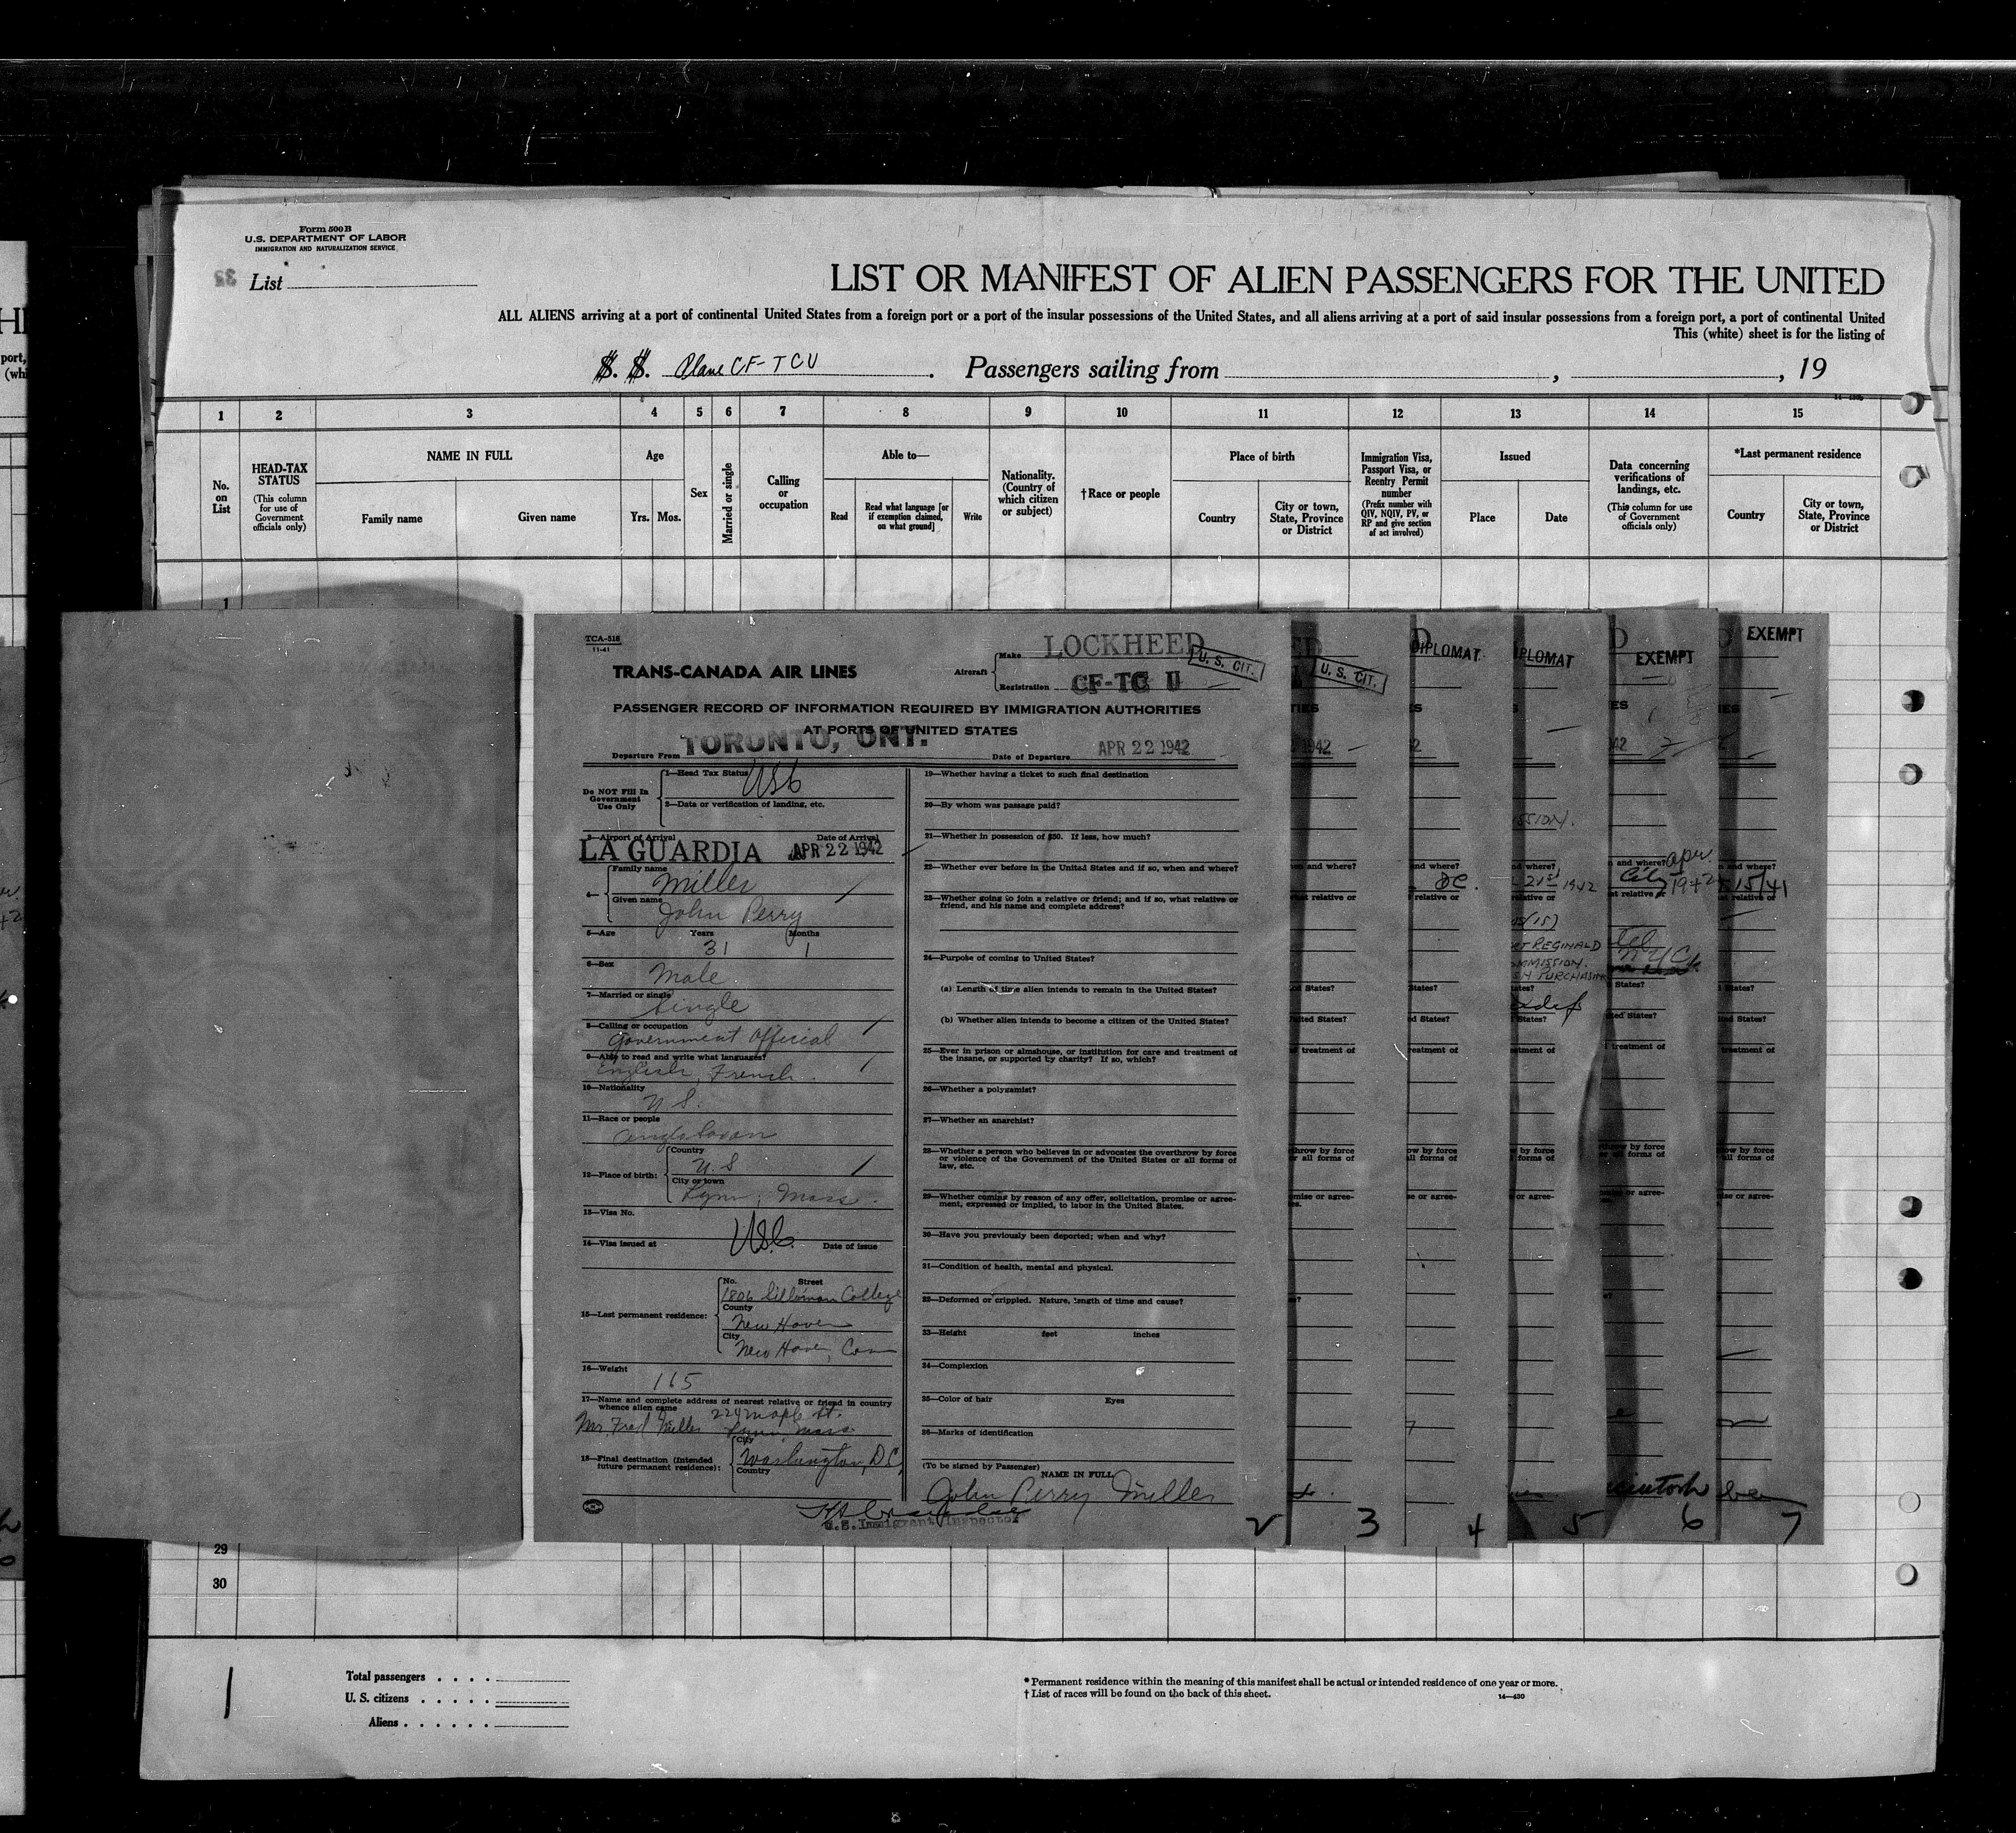 Form 500B
U.S. DEPARTMENT OF LABOR
IMMIGRATION AND NATURALIZATION SERVICE
List
LIST OR MANIFEST OF ALIEN PASSENGERS FOR THE UNITED
ALL ALIENS arriving at a port of continental United States from a foreign port or a port of the insular possessions of the United States, and all aliens arriving at a port of said insular possessions from a foreign port, a port of continental United
This (white) sheet is for the listing of
S. S. Plane CF-TCU . Passengers sailing from , , 19
1 2 3 4 5 6 7 8 9 10 11 12 13 14 15
No. on List
HEAD-TAX STATUS
(This column for use of Government officials only)
NAME IN FULL
Family name Given name
Age
Yrs. Mos.
Sex
Married or single
Calling or occupation
Able to—
Read
Read what language [or if exemption claimed, on what ground]
Write
Nationality. (Country of which citizen or subject)
†Race or people
Place of birth
Country
City or town, State, Province or District
Immigration Visa, Passport Visa, or Reentry Permit number
(Prefix number with QIV, NQIV, PV, or RP and give section of act involved)
Issued
Place Date
Data concerning verifications of landings, etc.
(This column for use of Government officials only)
*Last permanent residence
Country
City or town, State, Province or District
1
TCA-518
11-41
TRANS-CANADA AIR LINES
Aircraft
Make LOCKHEED
Registration CF-TC U
U. S. CIT.
PASSENGER RECORD OF INFORMATION REQUIRED BY IMMIGRATION AUTHORITIES
AT PORTS OF UNITED STATES
Departure From TORONTO, ONT. Date of Departure APR 22 1942
Do NOT Fill In Government Use Only
1—Head Tax Status USC
2—Data or verification of landing, etc.
3—Airport of Arrival Date of Arrival
LA GUARDIA APR 22 1942
4— Family name
Miller
Given name
John Perry
5—Age Years Months
31 1
6—Sex
Male
7—Married or single
Single
8—Calling or occupation
Government Official
9—Able to read and write what languages?
English, French.
10—Nationality
U.S.
11—Race or people
Anglo Saxon
12—Place of birth:
Country
U.S
City or town
Lynn, Mass.
13—Visa No.
USC
14—Visa issued at Date of issue
15—Last permanent residence:
No. Street
1806 Silliman College
County
New Haven
City
New Haven, Conn
16—Weight
165
17—Name and complete address of nearest relative or friend in country whence alien came
Mr. Fred Miller 224 Maple St.
Lynn, Mass.
18—Final destination (intended future permanent residence):
City
Washington, D.C.
Country
19—Whether having a ticket to such final destination
20—By whom was passage paid?
21—Whether in possession of $50. If less, how much?
22—Whether ever before in the United States and if so, when and where?
23—Whether going to join a relative or friend; and if so, what relative or friend, and his name and complete address?
24—Purpose of coming to United States?
(a) Length of time alien intends to remain in the United States?
(b) Whether alien intends to become a citizen of the United States?
25—Ever in prison or almshouse, or institution for care and treatment of the insane, or supported by charity? If so, which?
26—Whether a polygamist?
27—Whether an anarchist?
28—Whether a person who believes in or advocates the overthrow by force or violence of the Government of the United States or all forms of law, etc.
29—Whether coming by reason of any offer, solicitation, promise or agreement, expressed or implied, to labor in the United States.
30—Have you previously been deported; when and why?
31—Condition of health, mental and physical.
32—Deformed or crippled. Nature, length of time and cause?
33—Height feet inches
34—Complexion
35—Color of hair Eyes
36—Marks of identification
(To be signed by Passenger)
NAME IN FULL
John Perry Miller
U.S. Immigrant Inspector
U. S. CIT.
DIPLOMAT
DIPLOMAT
EXEMPT
EXEMPT
2 3 4 5 6 7
29
30
1
Total passengers
U. S. citizens
Aliens
* Permanent residence within the meaning of this manifest shall be actual or intended residence of one year or more.
† List of races will be found on the back of this sheet.
14—430